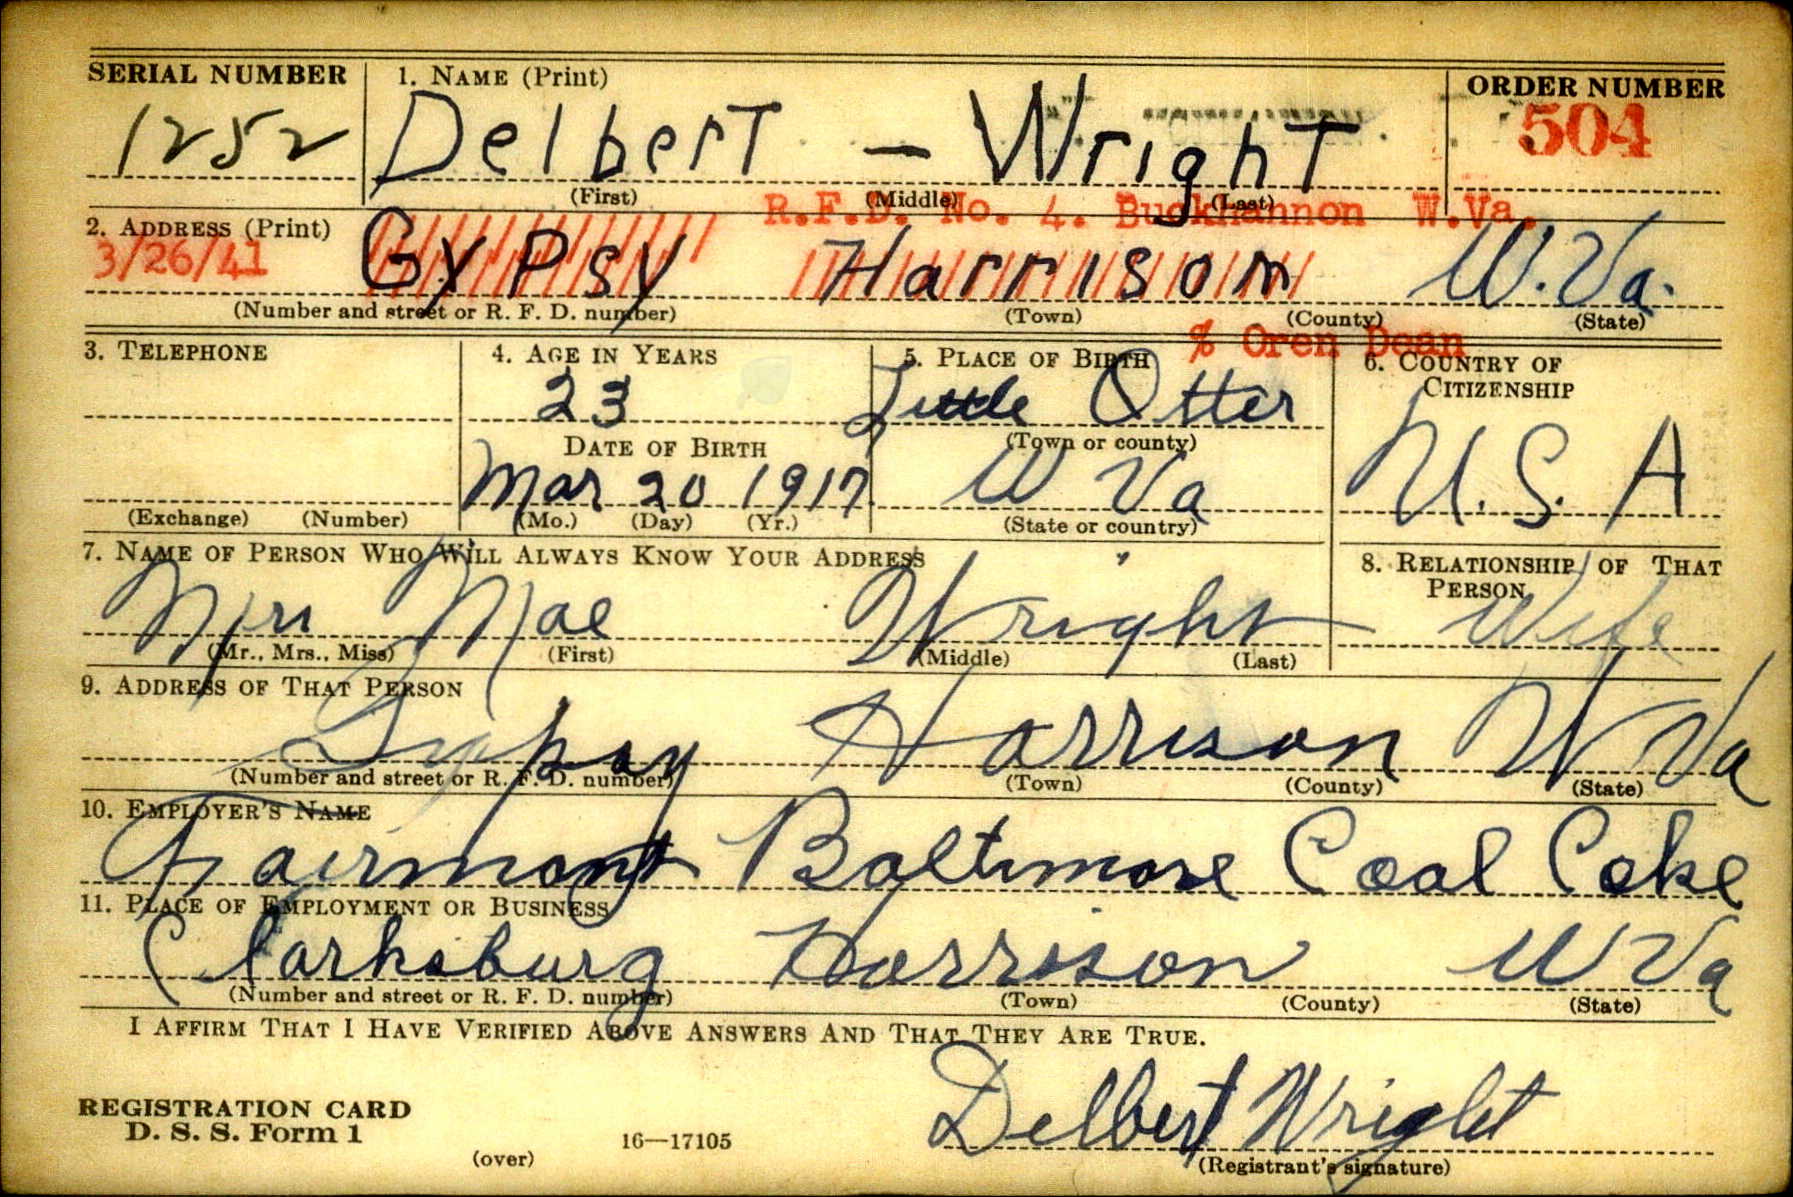 SERIAL NUMBER 1. NAME (Print) ORDER NUMBER
1252 Delbert — Wright 504
(First) (Middle) (Last)
R.F.D. No. 4. Buckhannon W.Va.
2. ADDRESS (Print)
3/26/41 Gypsy Harrison W.Va.
(Number and street or R. F. D. number) (Town) (County) (State)
% Oren Dean
3. TELEPHONE 4. AGE IN YEARS 5. PLACE OF BIRTH 6. COUNTRY OF
CITIZENSHIP
23 Little Otter
DATE OF BIRTH (Town or county)
Mar 20 1917 W Va U.S. A
(Exchange) (Number) (Mo.) (Day) (Yr.) (State or country)
7. NAME OF PERSON WHO WILL ALWAYS KNOW YOUR ADDRESS 8. RELATIONSHIP OF THAT
PERSON
Mrs Mae Wright Wife
(Mr., Mrs., Miss) (First) (Middle) (Last)
9. ADDRESS OF THAT PERSON
Gypsy Harrison W Va
(Number and street or R. F. D. number) (Town) (County) (State)
10. EMPLOYER'S NAME
Fairmont Baltimore Coal Coke
11. PLACE OF EMPLOYMENT OR BUSINESS
Clarksburg Harrison W Va
(Number and street or R. F. D. number) (Town) (County) (State)
I AFFIRM THAT I HAVE VERIFIED ABOVE ANSWERS AND THAT THEY ARE TRUE.
Delbert Wright
REGISTRATION CARD
D. S. S. Form 1 16—17105
(over) (Registrant's signature)